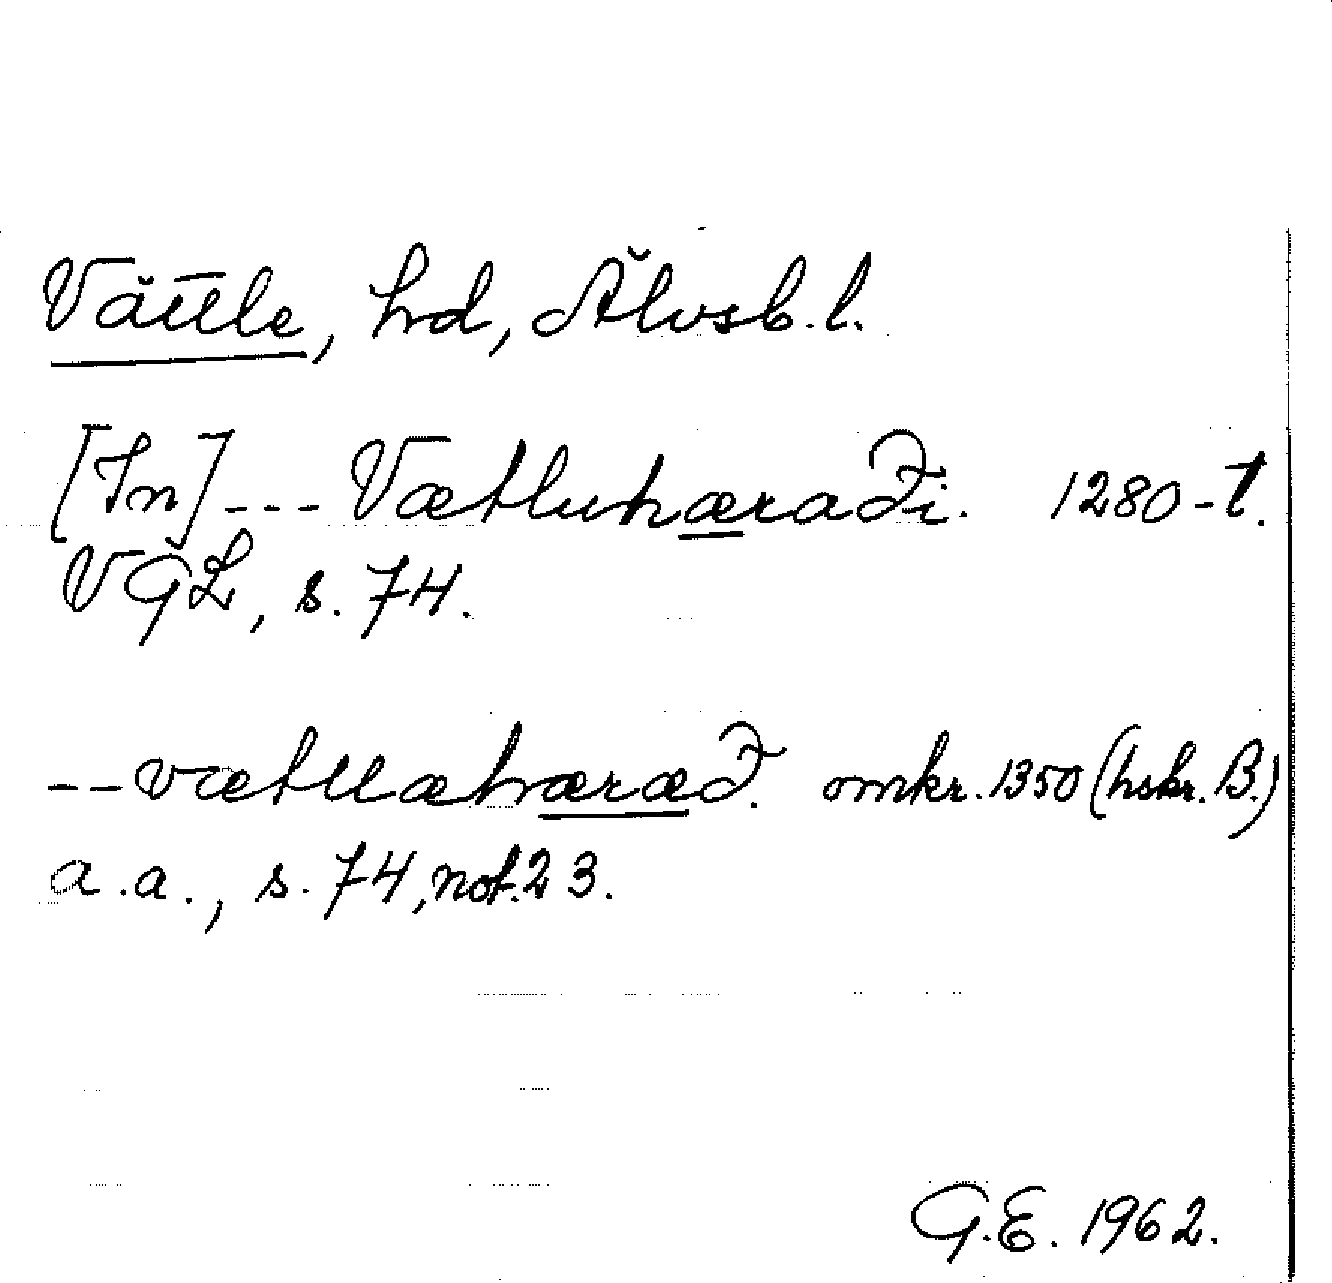 Vättle, hd, Älvsb. l.
[In] --- Vætluhæraði. 1280-t.
VGL, s. 74.
-- vætllæhæræð. omkr. 1350 (hskr. B.)
a.a., s. 74, not. 23.
G.E. 1962.